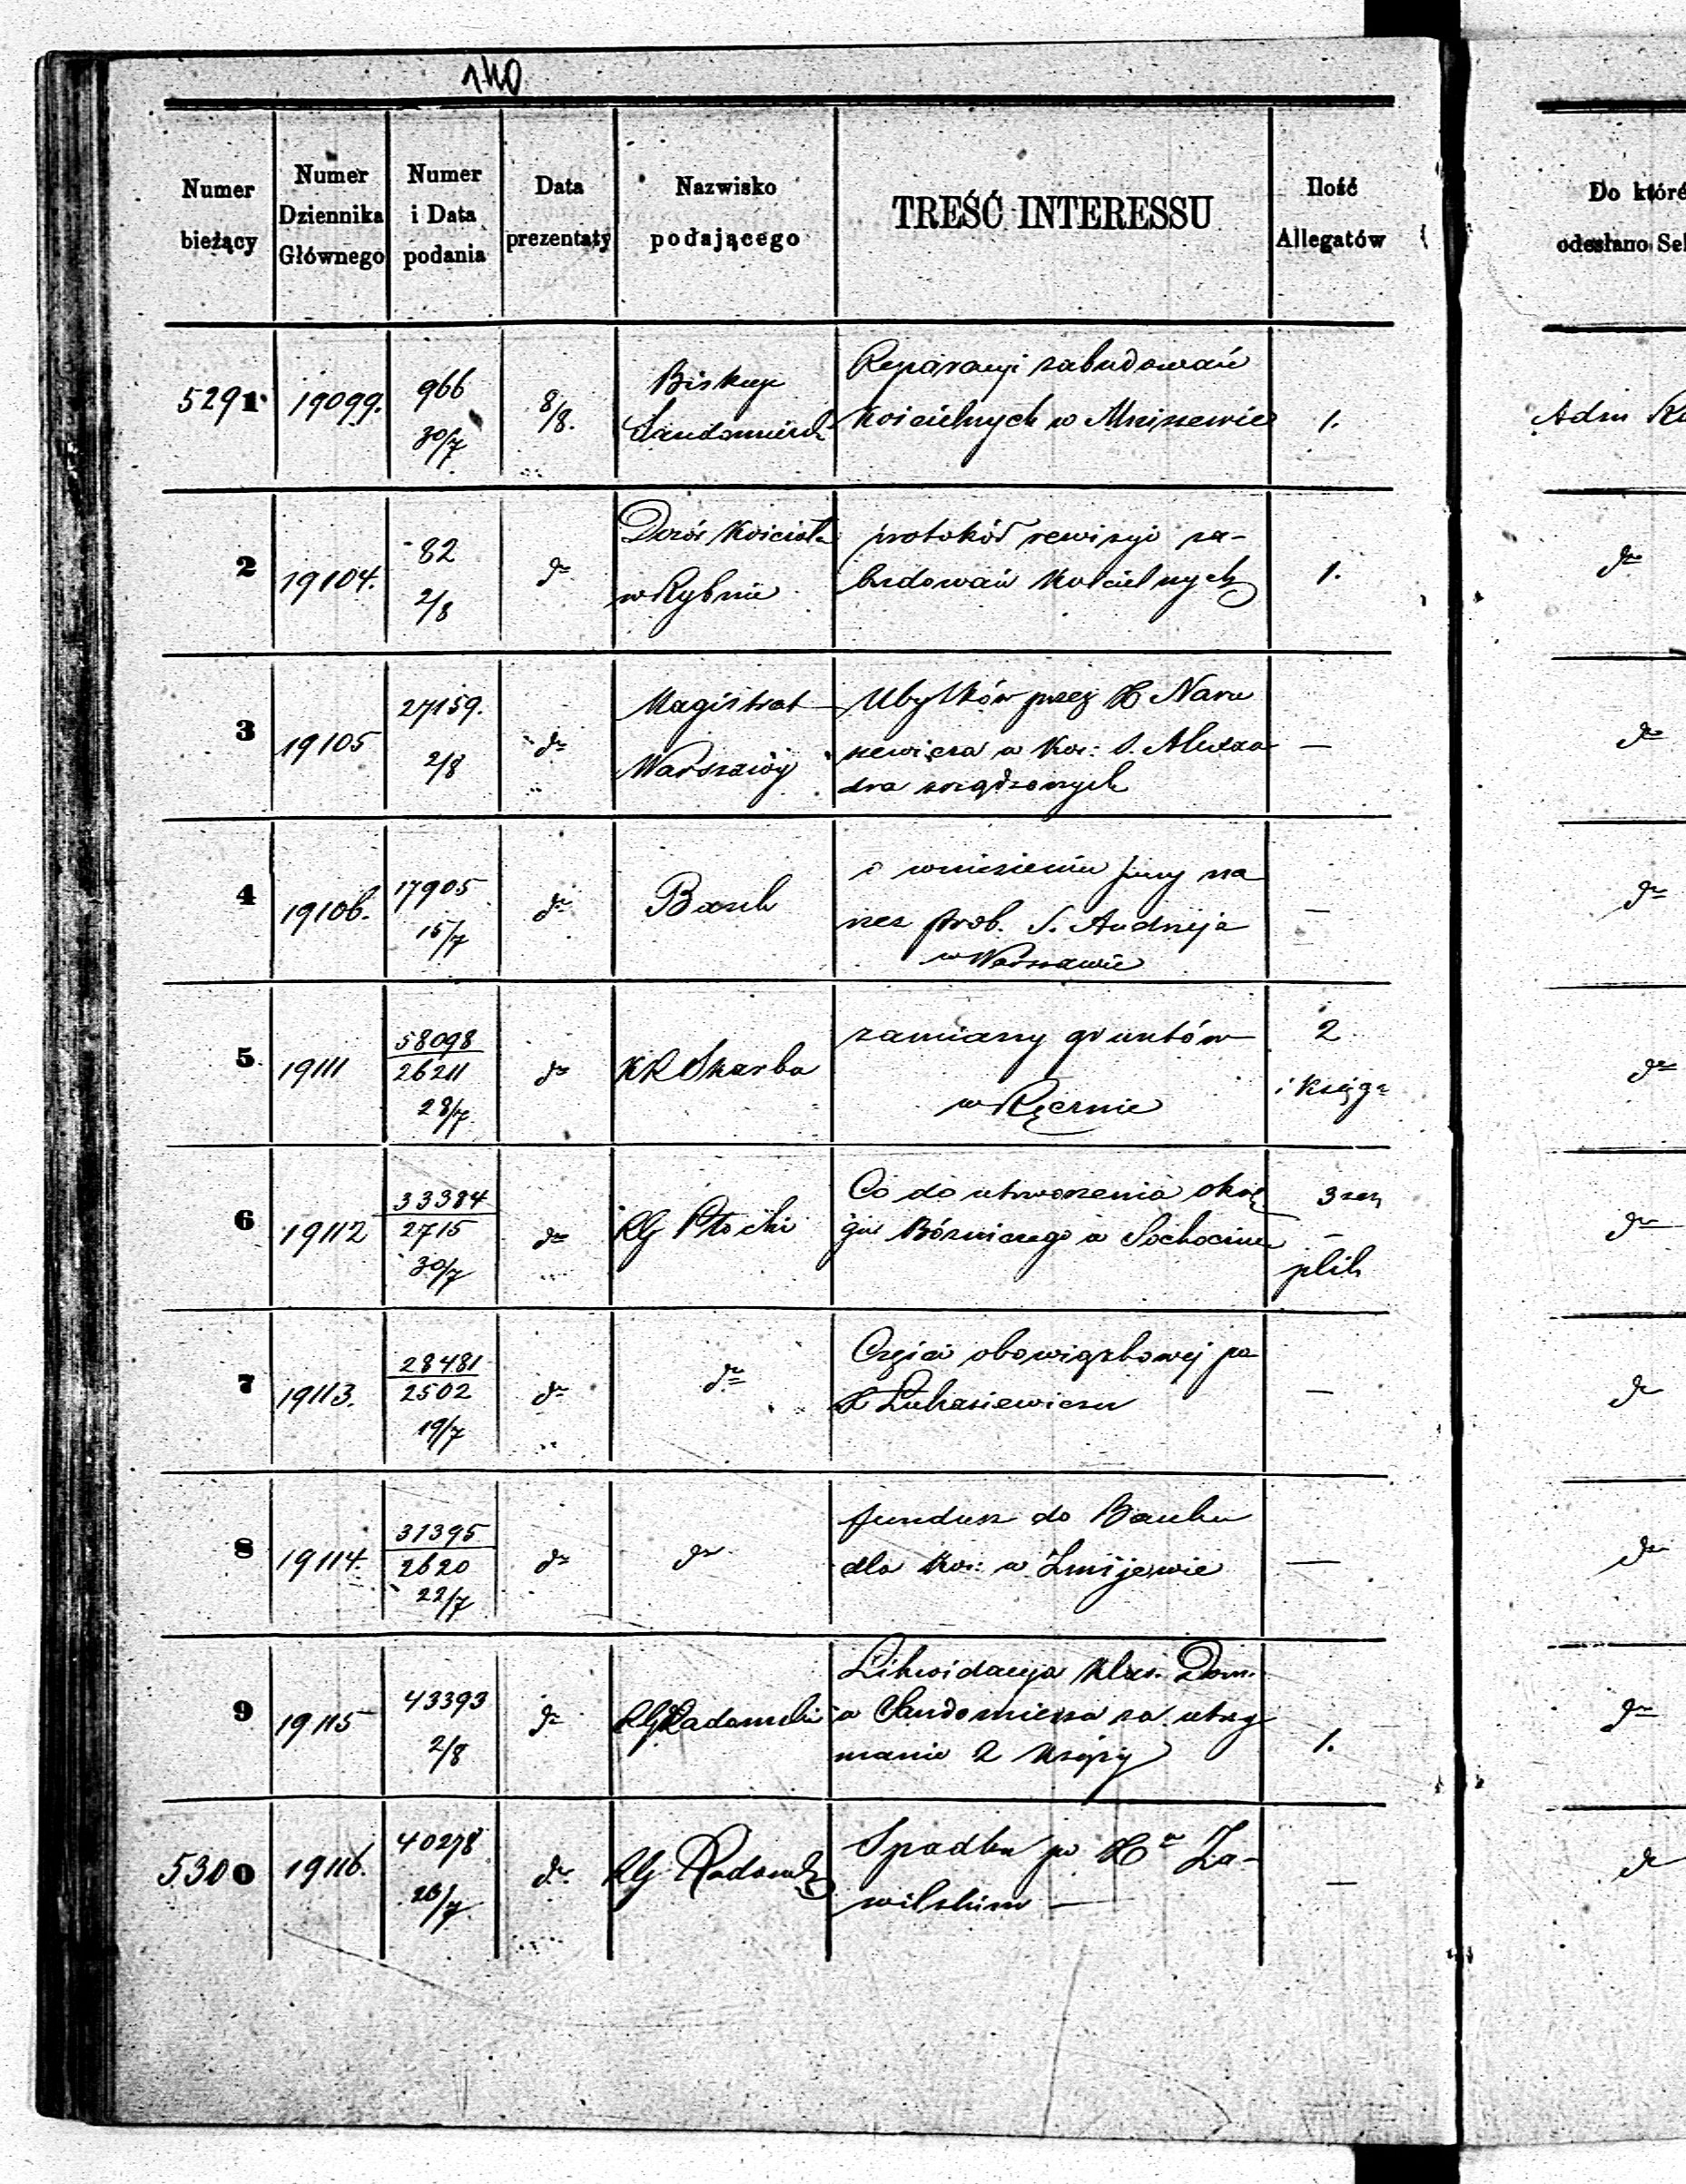 140
Numer bieżący
Numer Dziennika Głównego
Numer i Data podania
Data prezentaty
Nazwisko podającego
TREŚĆ INTERESSU
Ilość Allegatów
Do któré
odesłano Sek
5291 19099. 966 30/7 8/8. Biskup Sandomiersk Reparacyi zabudowań
kościelnych w Mniszewie 1. Adm
2 19104. 82 2/8 dto Dozór Kościoła w Rybnie protokół rewizyi za-
budowań kościelnych 1. dto
3 19105 27159. 2/8 dto Magistrat Warszawy Ubytków przez X Naru
szewicza w Koś: S. Alexan
dra zrządzonych — dto
4 19106. 17905 15/7 dto Bank o wniesieniu sumy na
rzecz prob. S. Andrzeja
w Warszawie — dto
5 19111 58098 26211 28/7 dto KR Skarbu zamiany gruntów
w Ręcznie 2 i księga dto
6 19112 33384 2715 30/7 dto RG Płocki Co do utworzenia okrę
gu Bóżniczego w Sochocinie 3 plik dto
7 19113. 28481 2502 19/7 dto dto Części obowiązkowej po
X Łukasiewiczu — dto
8 19114. 31395 2620 22/7 dto dto fundusz do Banku
dla Koś: w Żmijewie — dto
9 19115 43393 2/8 dto RG Radomski Likwidacyja Klas. Dom.
w Sandomierza za utrzy
manie 2 księży 1. dto
5300 19116. 40278 26/7 dto RG Radomsk Spadku po X Za-
wilskim — — dto